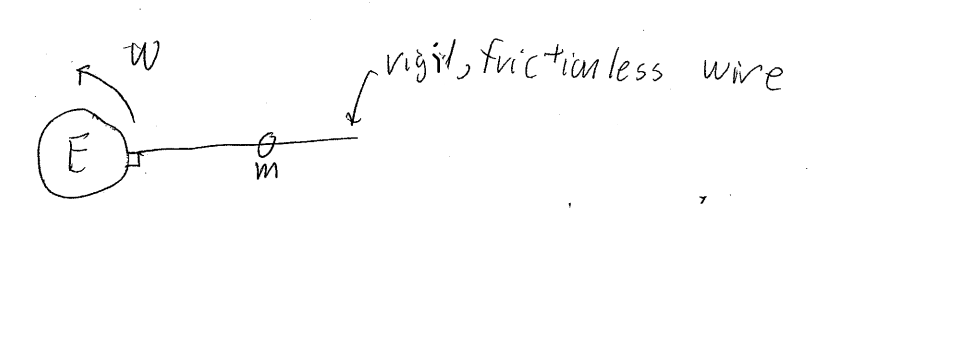 w
rigid, frictionless wire
E
m